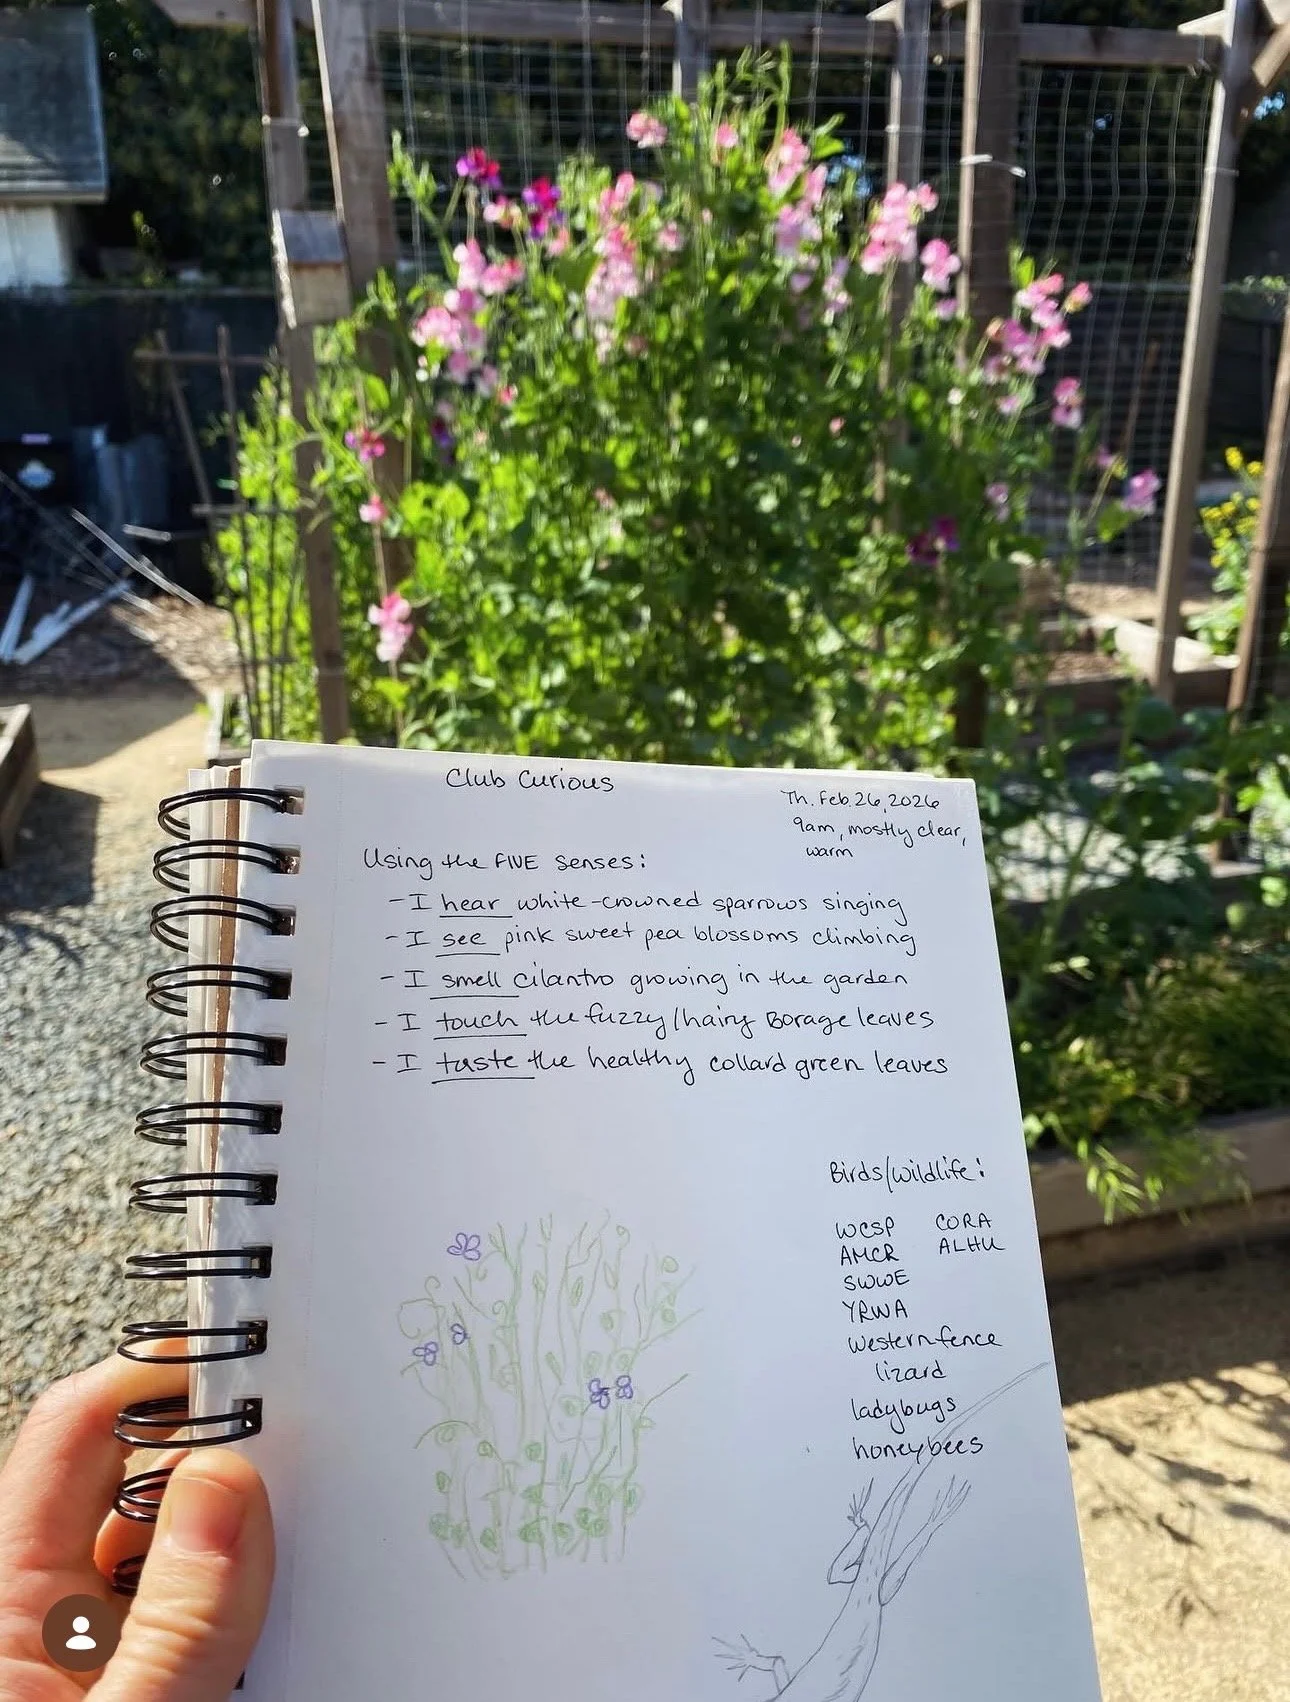 Club Curious
Th. Feb. 26, 2026
9am, mostly clear,
warm
Using the FIVE Senses:
- I hear white-crowned sparrows singing
- I see pink sweet pea blossoms climbing
- I smell cilantro growing in the garden
- I touch the fuzzy/hairy Borage leaves
- I taste the healthy collard green leaves
Birds/wildlife:
WCSP CORA
AMCR ALHU
SWWE
YRWA
Western fence
lizard
ladybugs
honeybees